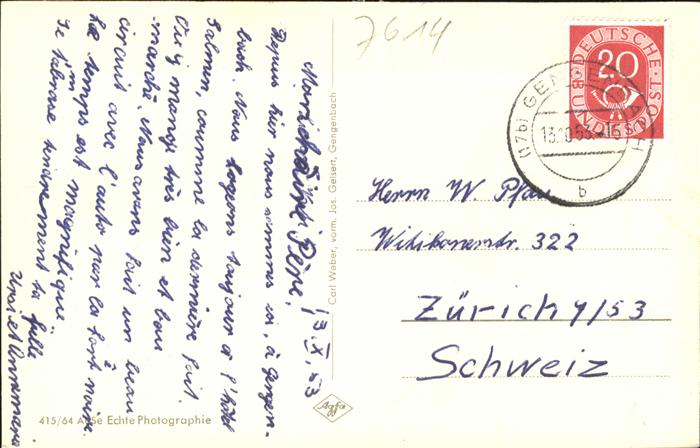 7614
13.X.53
Mon cher Père,
Depuis hier nous sommes ici, à Gengen-
bach. Nous logeons toujour à l'hôtel
Salmen, coumme la dernière foit.
On y mange très bien et bon
marché. Nous avons fait un beau
circuit avec l'auto par la forêt noire.
Le temps est magnifique.
Je t'abrasse tendrement ta fille
et Annemarie
Carl Weber, vorm. Jos. Geisert, Gengenbach
415/64 A5e Echte Photographie
Agfa
DEUTSCHE BUNDESPOST
20
(17b) GENGENBACH
13.10.53
b
Herrn W. Pfau
Witikonerstr. 322
Zürich 7/53
Schweiz